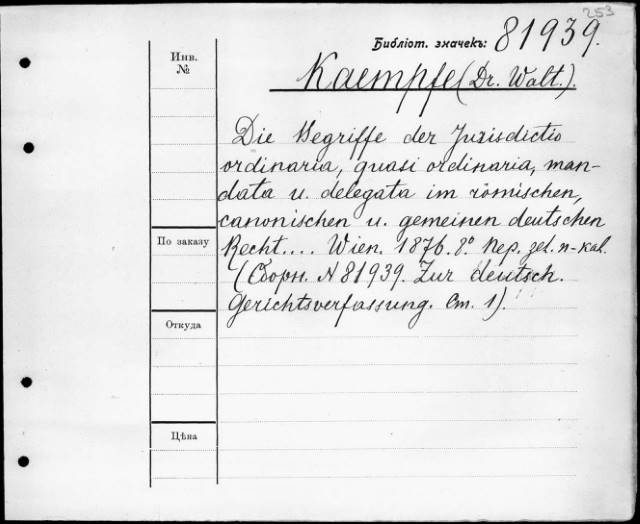 253
Библіот. значекъ: 81939.
Инв. №
Kaempfe (Dr. Walt.).
Die Begriffe der Jurisdictio
ordinaria, quasi ordinaria, man-
data u. delegata im römischen,
canonischen u. gemeinen deutschen
По заказу
Recht.... Wien. 1876. 8° Пер. зел. п-кал.
(Сборн. № 81939. Zur deutsch.
Gerichtsverfassung. Ст. 1).
Откуда
Цѣна